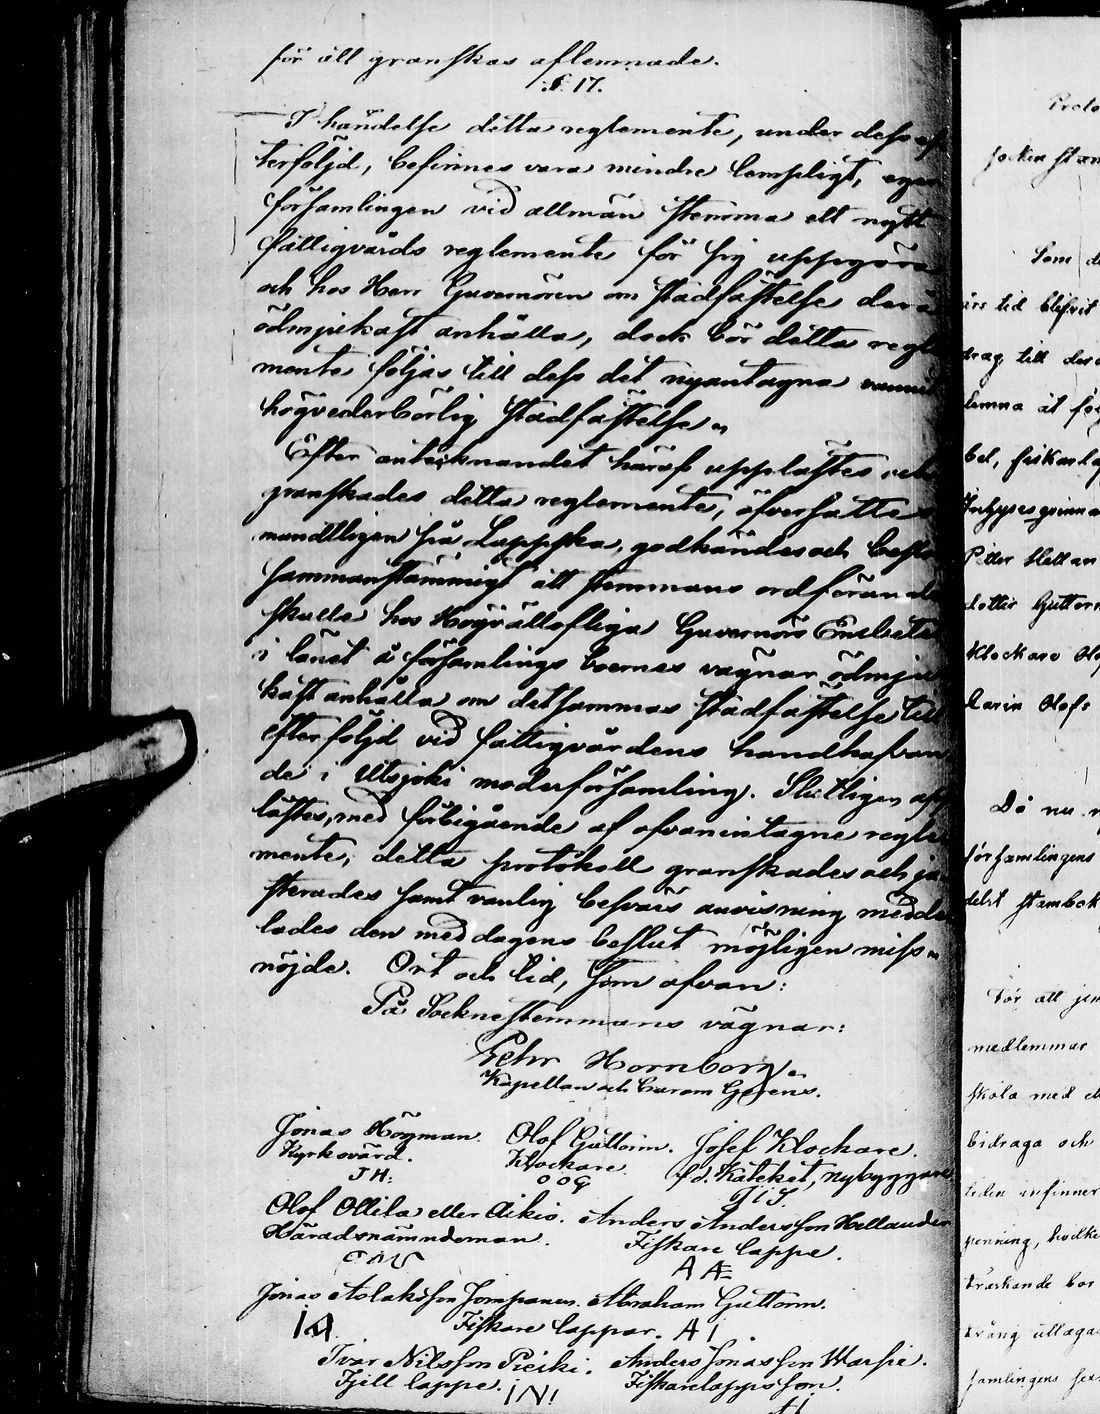 för att granskas aflemnade.
§ 17.
I händelse detta reglemente, under dess ef
terföljd, befinnes vara mindre lempligt, eger
församlingen vid allmän stemma ett nytt
fattigvårds reglemente för sig uppgöra
och hos Herr Guvernören om stadfästelse derå
ödmjukast anhålla, dock bör detta regle
mente följas till dess det nyantagna vunnit
högvederbörlig stadfästelse„
Efter antecknandet häraf upplästes och
granskades detta reglemente, öfversattes
mundtligen på Lappska, godkändes och beslöts
sammanstämmigt att stemmans ordförande
skulle hos Högvällofliga Guvernörs Embetet
i länet å församlings boernes vägnar ödmju
kast anhålla om detsammas stadfästelse till
efterföljd vid fattigvårdens handhafvan
de i Utsjoki moderförsamling. Slutligen upp
lästes, med förbigående af ofvanintagne regle
mente, detta protokoll granskades och ju
sterades samt vanlig besvärs anvisning medde
lades den med dagens beslut möjligen miss„
nöjde. Ort och tid, som ofvan:
På Socknestemmans vägnar:
Petr Hornborg.
Kapellan och Curam Gerens.
Jonas Högman. Olof Guttorm. Josef Klockare.
Kyrkovärd. Klockare. f.d. Kateket, nybyggare
JH: OOG
Olof Ollila eller Aikio. Anders Andersson Hellander
Häradsnämndeman. Fiskare lappe.
AAE
Jonas Aslaksson Jompanen. Abraham Guttorm.
IA Fiskare lappar. AI
Ivar Nilsson Pieiki. Anders Jonasson Warsie.
Fjell lappe. INI Fiskarelappsson.
AI
Som
års tid blifvit
drag till
lemna åt
bel, fiskare
Petter
dotter Guttorm
Klockare
Karin Olofs
Då nu
församlingens
För att
medlemmar
skola med
bidraga och